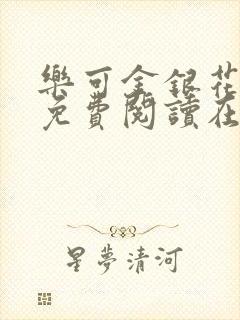 樂可金銀花
免費閱讀在
星夢清河